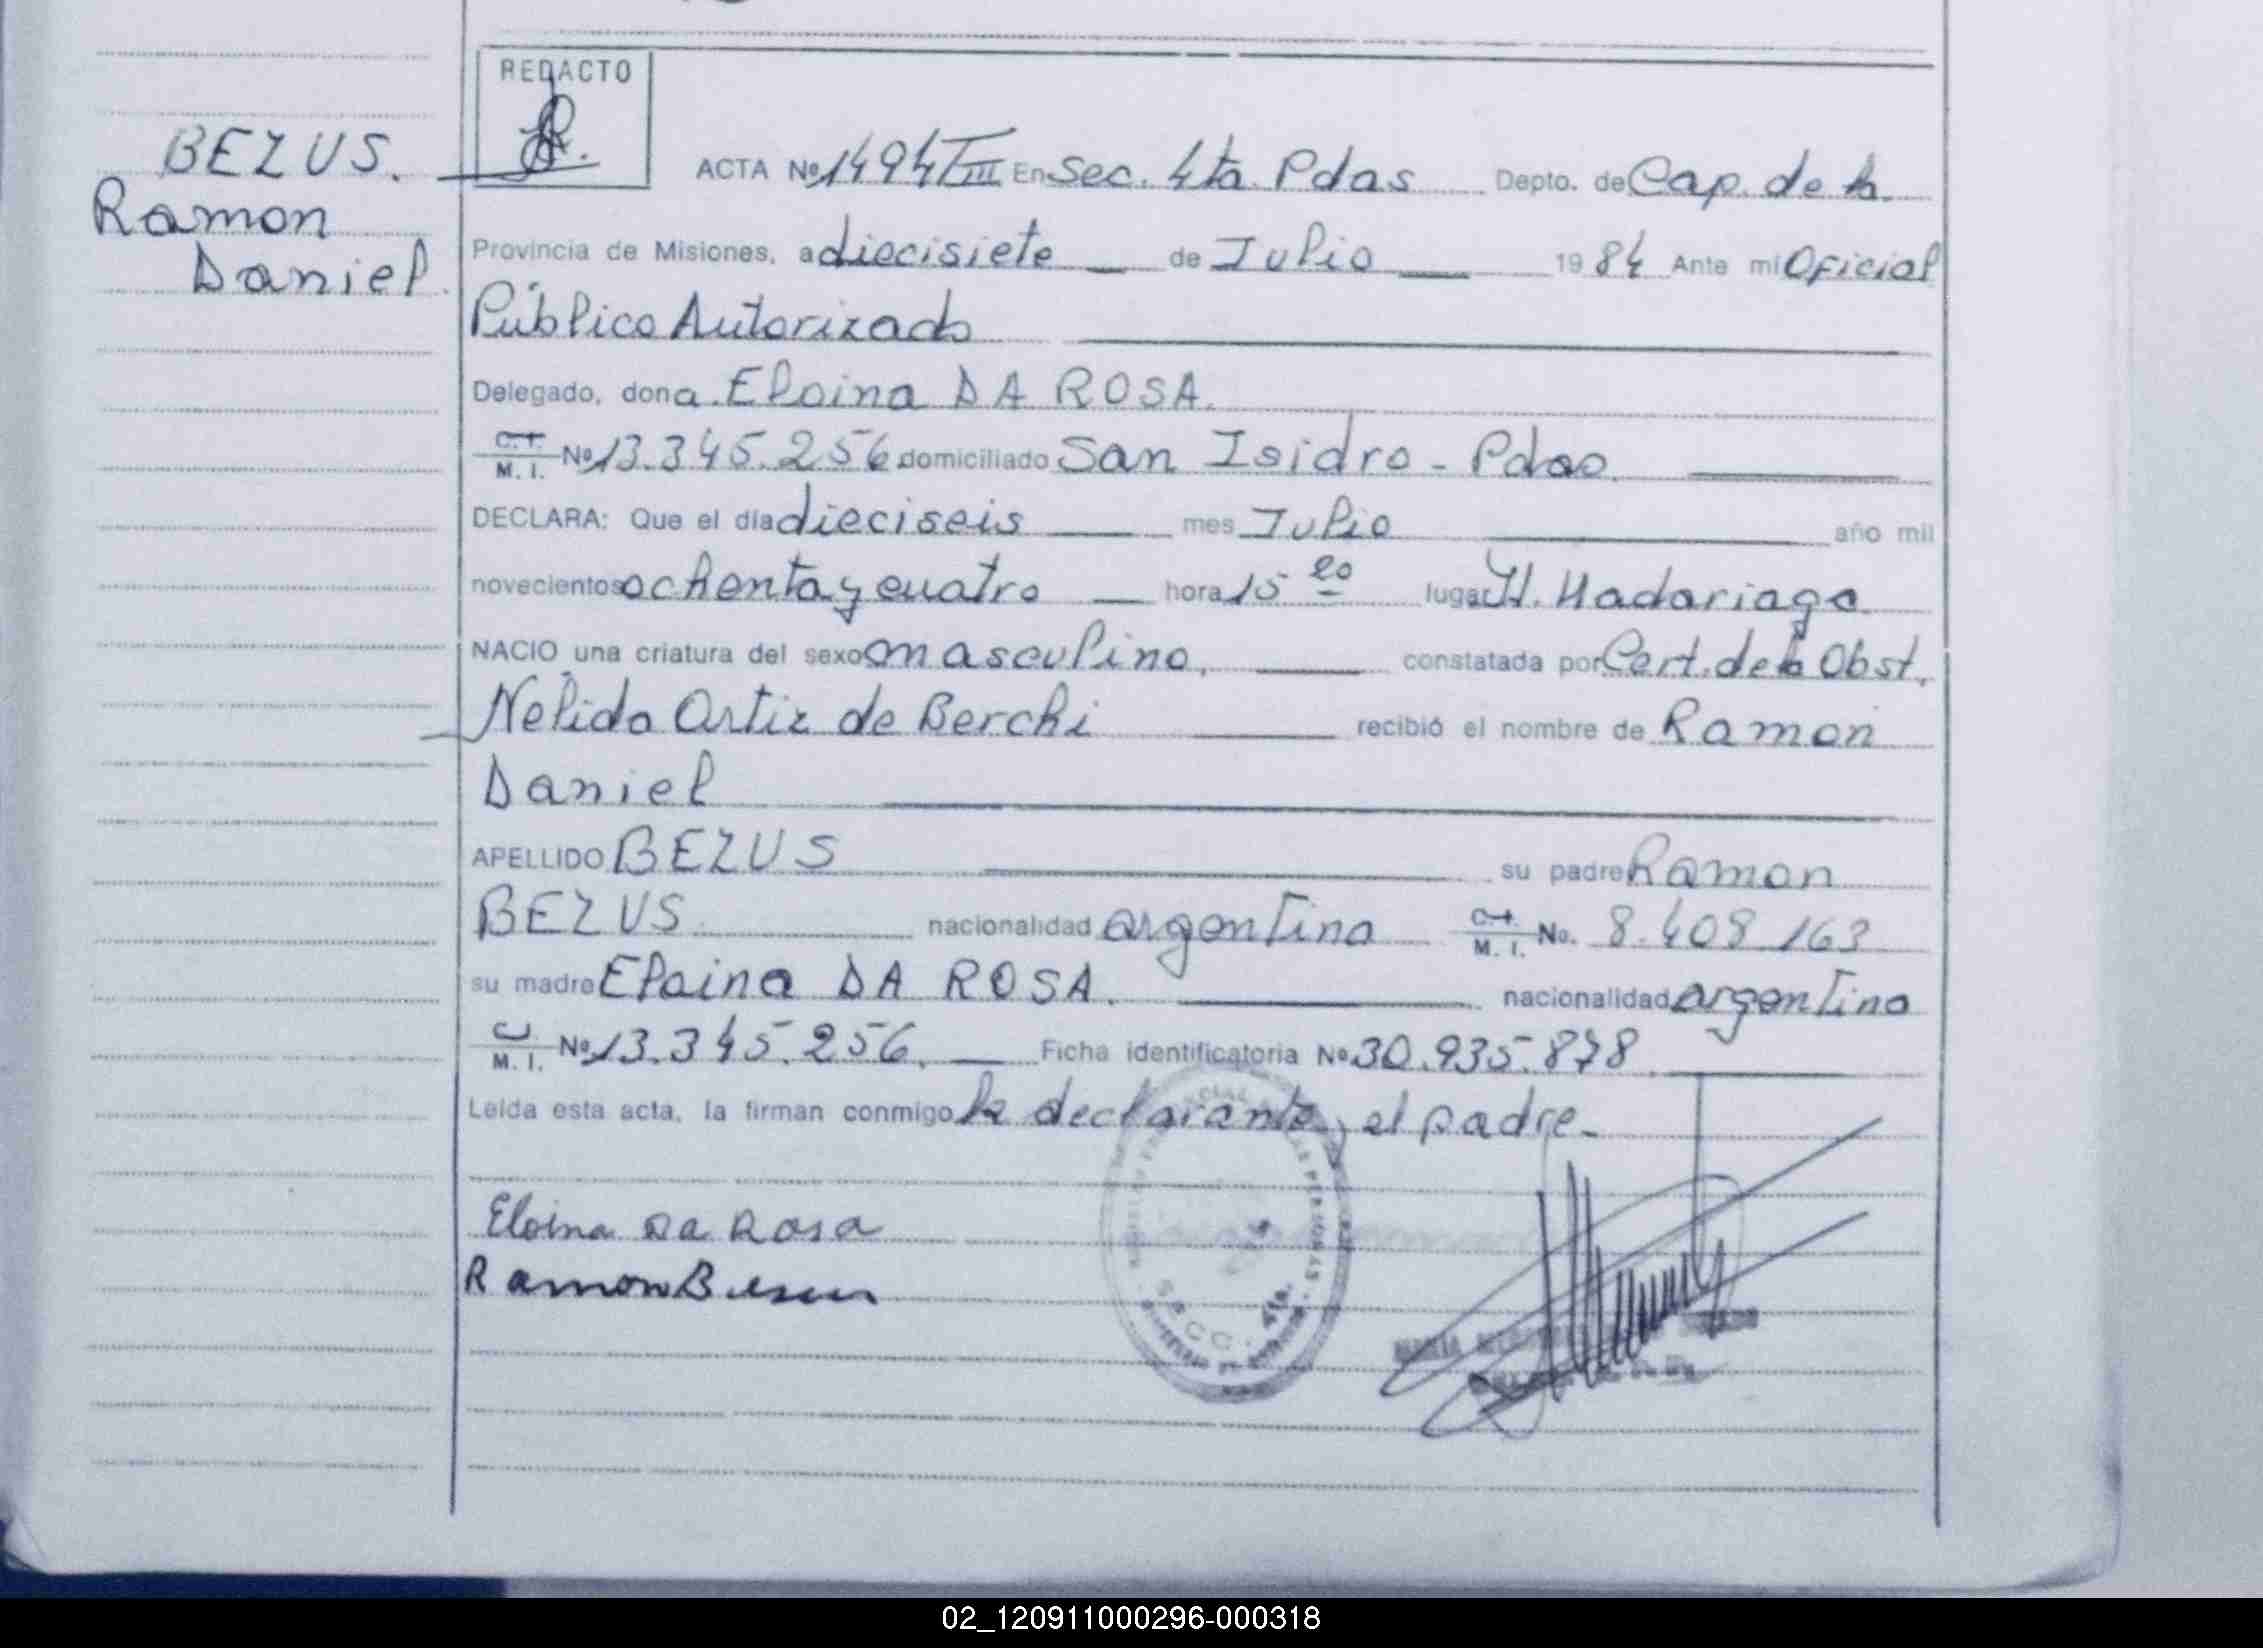 REDACTO
BEZUS.
Ramon
Daniel.
ACTA Nº 1494 T III En Sec. 4ta. Pdas Depto. de Cap. de la
Provincia de Misiones, a diecisiete de Julio 1984 Ante mi Oficial
Público Autorizado
Delegado, dona. Eloina DA ROSA.
C. I. M. I. Nº 13.345.256 domiciliado San Isidro - Pdas.
DECLARA: Que el día dieciseis mes Julio año mil
novecientos ochenta y cuatro hora 15 20 lugar H. Madariaga
NACIO una criatura del sexo masculino, constatada por Cert. de la Obst.
Nelida Ortiz de Berchi recibió el nombre de Ramon
Daniel
APELLIDO BEZUS su padre Ramon
BEZUS. nacionalidad argentina C. I. M. I. No. 8.408.163
su madre Eloina DA ROSA. nacionalidad argentina
M. I. Nº 13.345.256. Ficha identificatoria Nº 30.935.878
Leida esta acta, la firman conmigo la declarante y el padre.
Eloina Da Rosa
Ramon
02_120911000296-000318